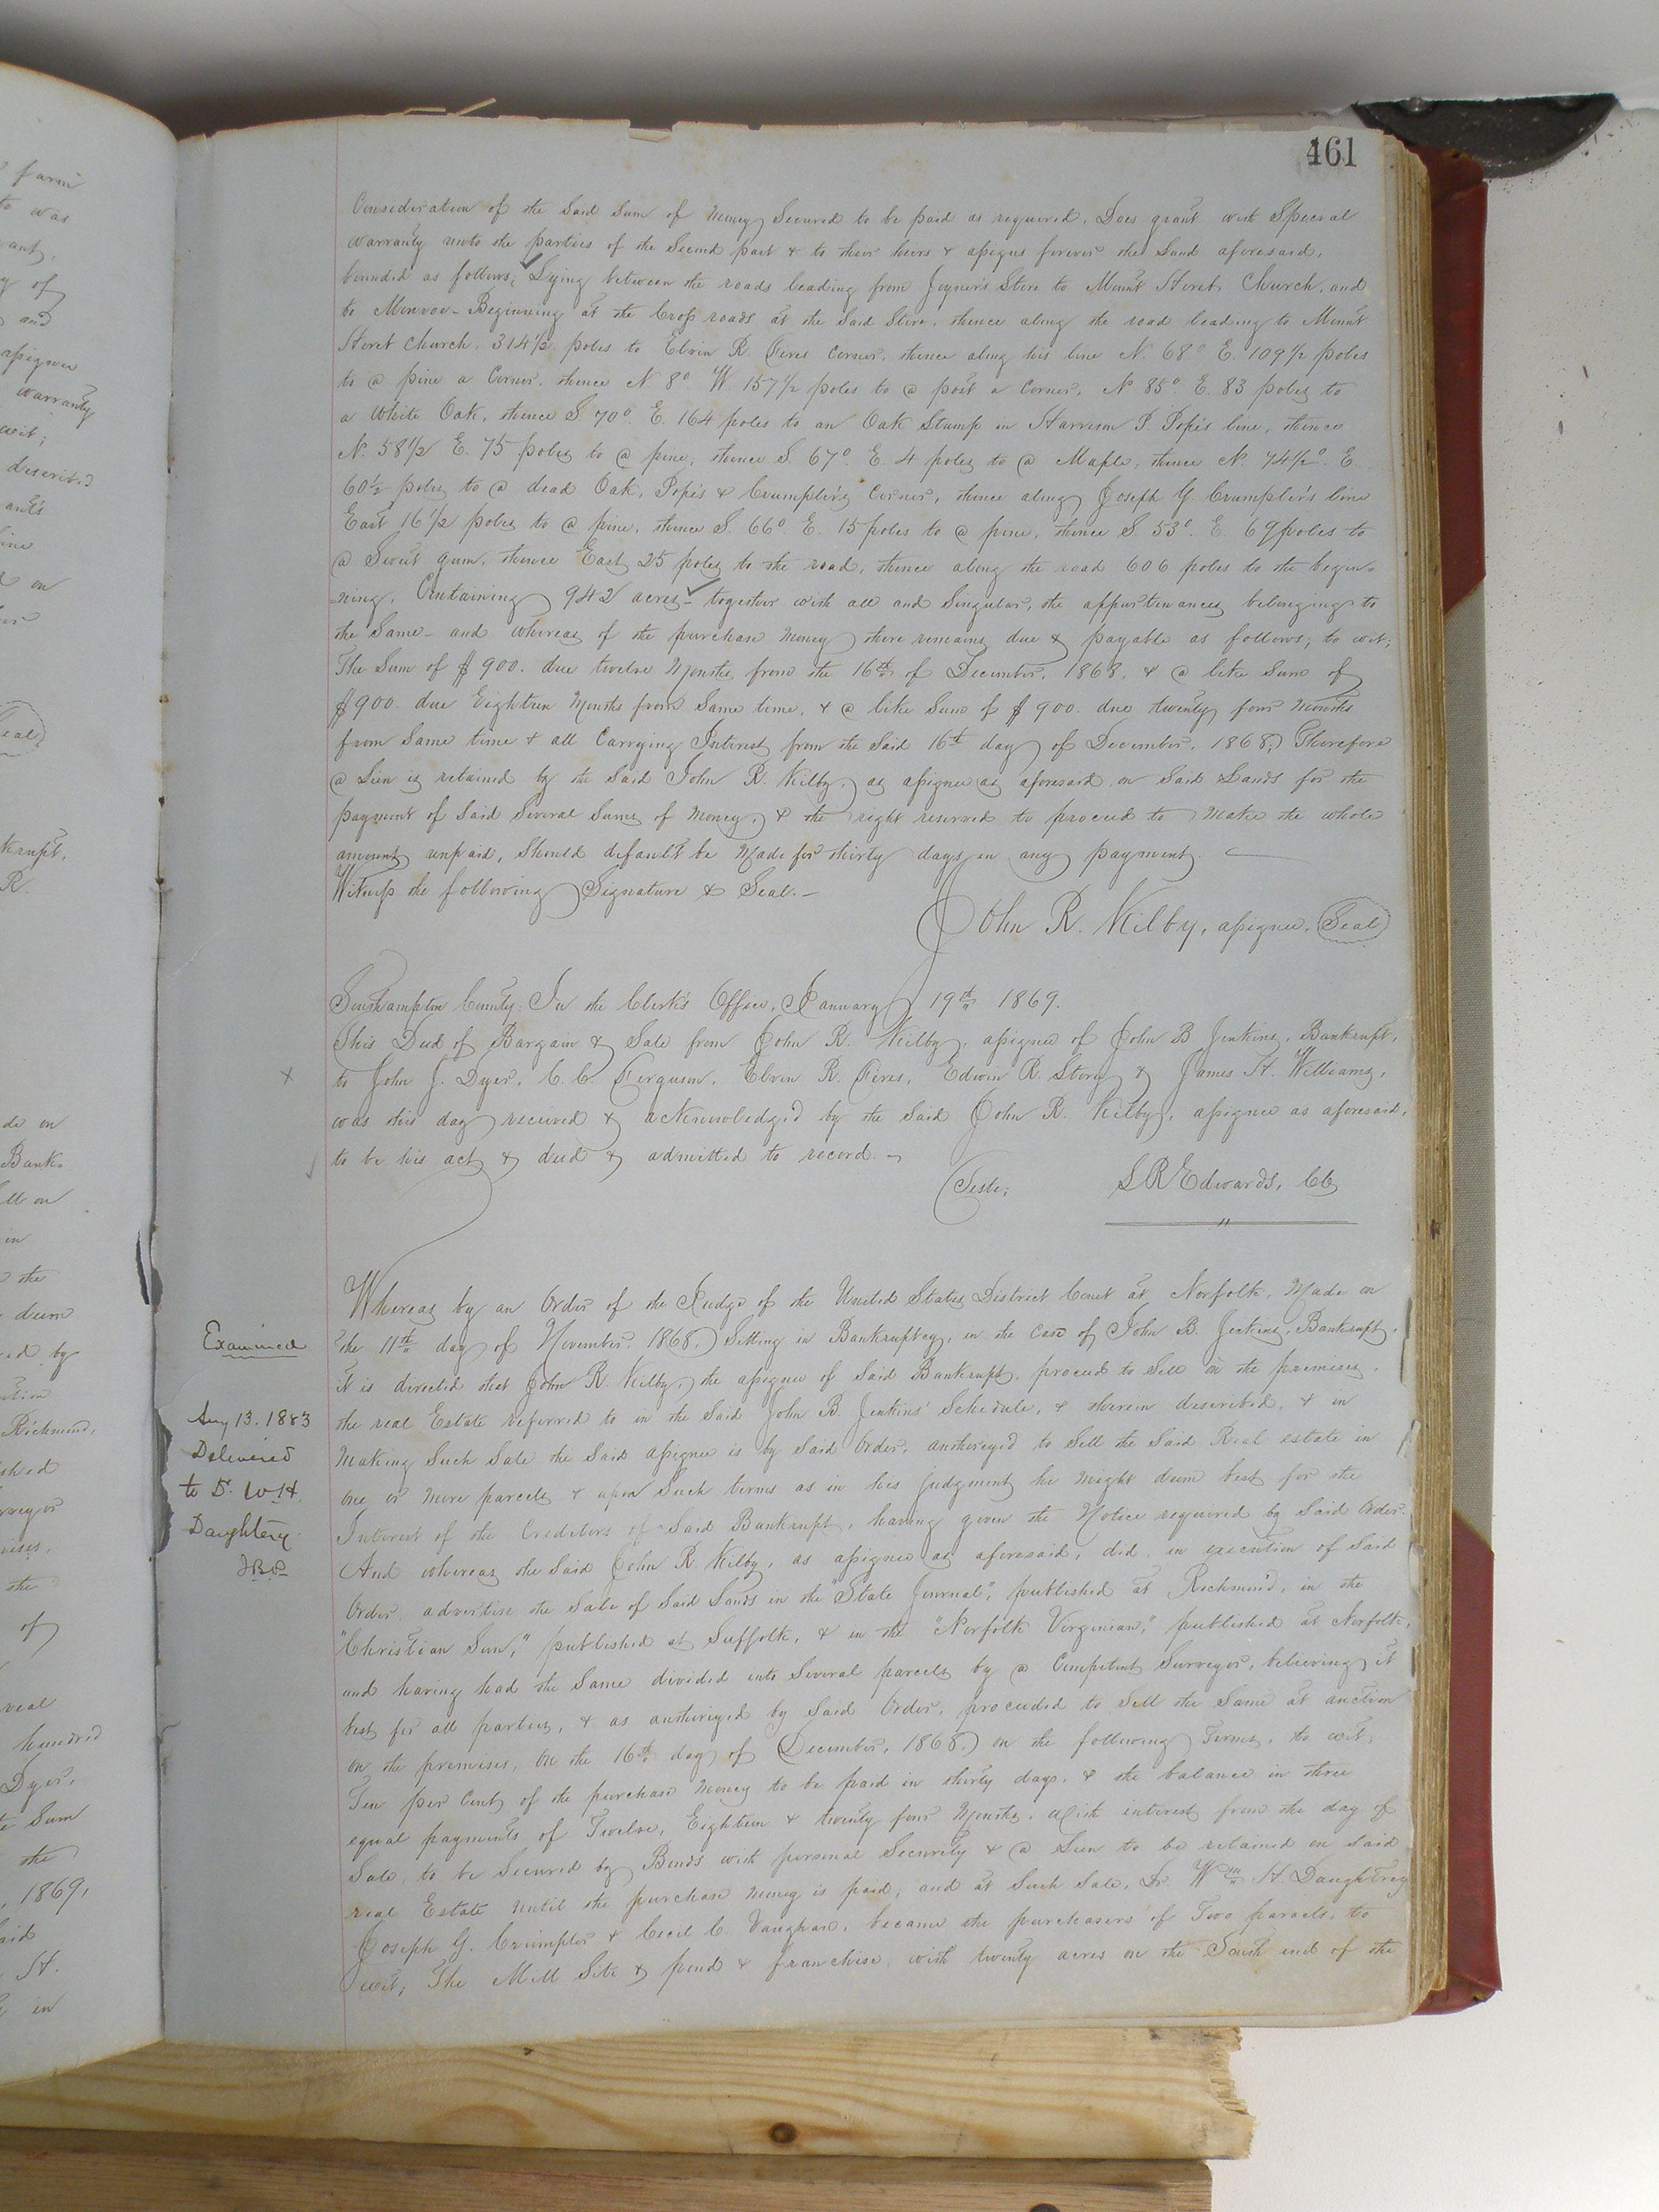 461
Consideration of the Said Sum of Money Secured to be paid as required, Does grant with Special
warranty unto the parties of the Second part & to their heirs & assigns forever the Land aforesaid,
bounded as follows; Lying between the roads leading from Joyner's Store to Mount Horeb Church, and
to Monroe - Beginning at the Cross roads at the Said Store, thence along the road leading to Mount
Horeb Church, 314 1/2 poles to Elvin R. Fires Corner, thence along his line N. 68° E. 109 1/2 poles
to a pine a Corner, thence N 8° W. 157 1/2 poles to a post a Corner, N 85° E. 83 poles to
a White Oak, thence S. 70° E. 164 poles to an Oak Stump in Harrison P. Pope's line, thence
N. 58 1/2 E. 75 poles to a pine; thence S. 67° E. 4 poles to a Maple, thence N. 74 1/2° E
60 1/2 poles to a dead Oak, Pope's & Crumpler's Corner, thence along Joseph G. Crumpler's line
East 16 1/2 poles to a pine, thence S. 66° E. 15 poles to a pine, thence S. 53° E. 69 poles to
a Sweet gum, thence East 25 poles to the road, thence along the road 606 poles to the begin=
=ning, Containing 942 acres - together with all and Singular, the appurtenances belonging to
the Same - and whereas of the purchase Money there remains due & payable as follows; to wit;
The Sum of $900. due twelve Months from the 16th of December, 1868, & a like Sum of
$900. due Eighteen Months from Same time, & a like Sum of $900. due twenty four Months
from Same time & all Carrying Interest from the Said 16th day of December, 1868, Therefore
a Lien is retained by the Said John R. Kilby, as assignee as aforesaid, on Said Lands for the
payment of Said Several Sums of Money, & the right reserved to proceed to Make the whole
amount unpaid, Should default be Made for thirty days in any payment.
Witness the following Signature & Seal. -
John R. Kilby, assignee, Seal
Southampton County: In the Clerk's Office, January 19th 1869.
This Deed of Bargain & Sale from John R. Kilby, assignee of John B. Jenkins, Bankrupt,
x to John J. Dyer, C. C. Ferguson, Elvin R. Fires, Edwin R. Story & James H. Williams,
was this day received & acknowledged by the Said John R. Kilby, assignee as aforesaid,
to be his act & deed & admitted to record. -
Teste; L R Edwards, CC
Whereas by an Order of the Judge of the United States District Court at Norfolk, Made on
Examined
the 11th day of November, 1868, Sitting in Bankruptcy, in the Case of John B. Jenkins, Bankrupt,
it is directed that John R. Kilby, the assignee of Said Bankrupt, proceed to Sell on the premises,
the real Estate referred to in the Said John B. Jenkins' Schedule, & therein described, & in
Making Such Sale the Said assignee is by Said Order, authorized to Sell the Said Real estate in
one or more parcels & upon Such terms as in his judgment he Might deem best for the
Interest of the Creditors of Said Bankrupt, having given the Notice required by Said Order.
Aug 13. 1883
Delivered
to Dr. W H.
Daughtery.
And whereas the Said John R. Kilby, as assignee as aforesaid, did in execution of Said
Order, advertise the Sale of Said Lands in the "State Journal", published at Richmond, in the
"Christian Sun," published at Suffolk, & in the "Norfolk Virginian," published at Norfolk,
and having had the Same divided into Several parcels by a Competent Surveyor, believing it
best for all parties, & as authorized by Said Order, proceeded to Sell the Same at auction
on the premises, on the 16th day of December, 1868, on the following Terms, to wit;
Ten per Cent of the purchase Money to be paid in thirty days, & the balance in three
equal payments of Twelve, Eighteen & twenty four Months, with interest from the day of
Sale, to be Secured by Bonds with personal Security & a Lien to be retained on Said
real Estate until the purchase Money is paid, and at Such Sale, Dr. Wm H. Daughtrey
Joseph G. Crumpler & Cecil C Vaughan, became the purchasers of Two parcels, to
wit; The Mill Site & pond & franchise, with twenty acres on the South end of the